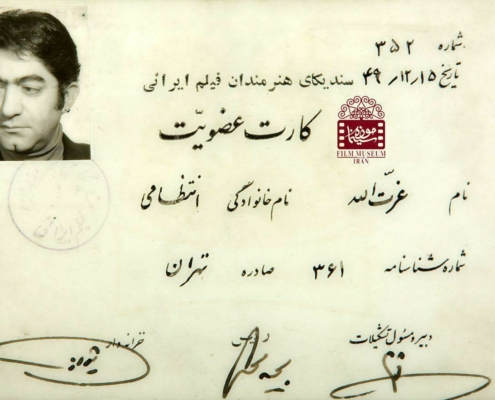 شماره ۳۵۲
تاریخ ۴۹/۱۲/۱۵
سندیکای هنرمندان فیلم ایرانی
کارت عضویّت
موزه سینما
FILM MUSEUM
IRAN
نام عزّت‌الله نام خانوادگی انتظامی
شماره شناسنامه ۳۶۱ صادره تهران
دبیر و مسئول تشکیلات
رئیس
خزانه‌دار